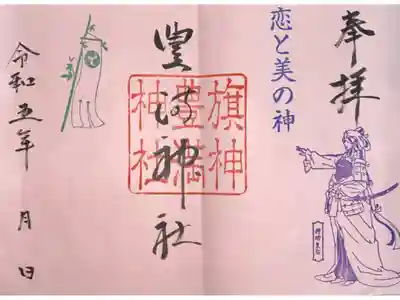 奉拝
恋と美の神
豊満神社
旗神
豊満
神社
令和五年 月 日